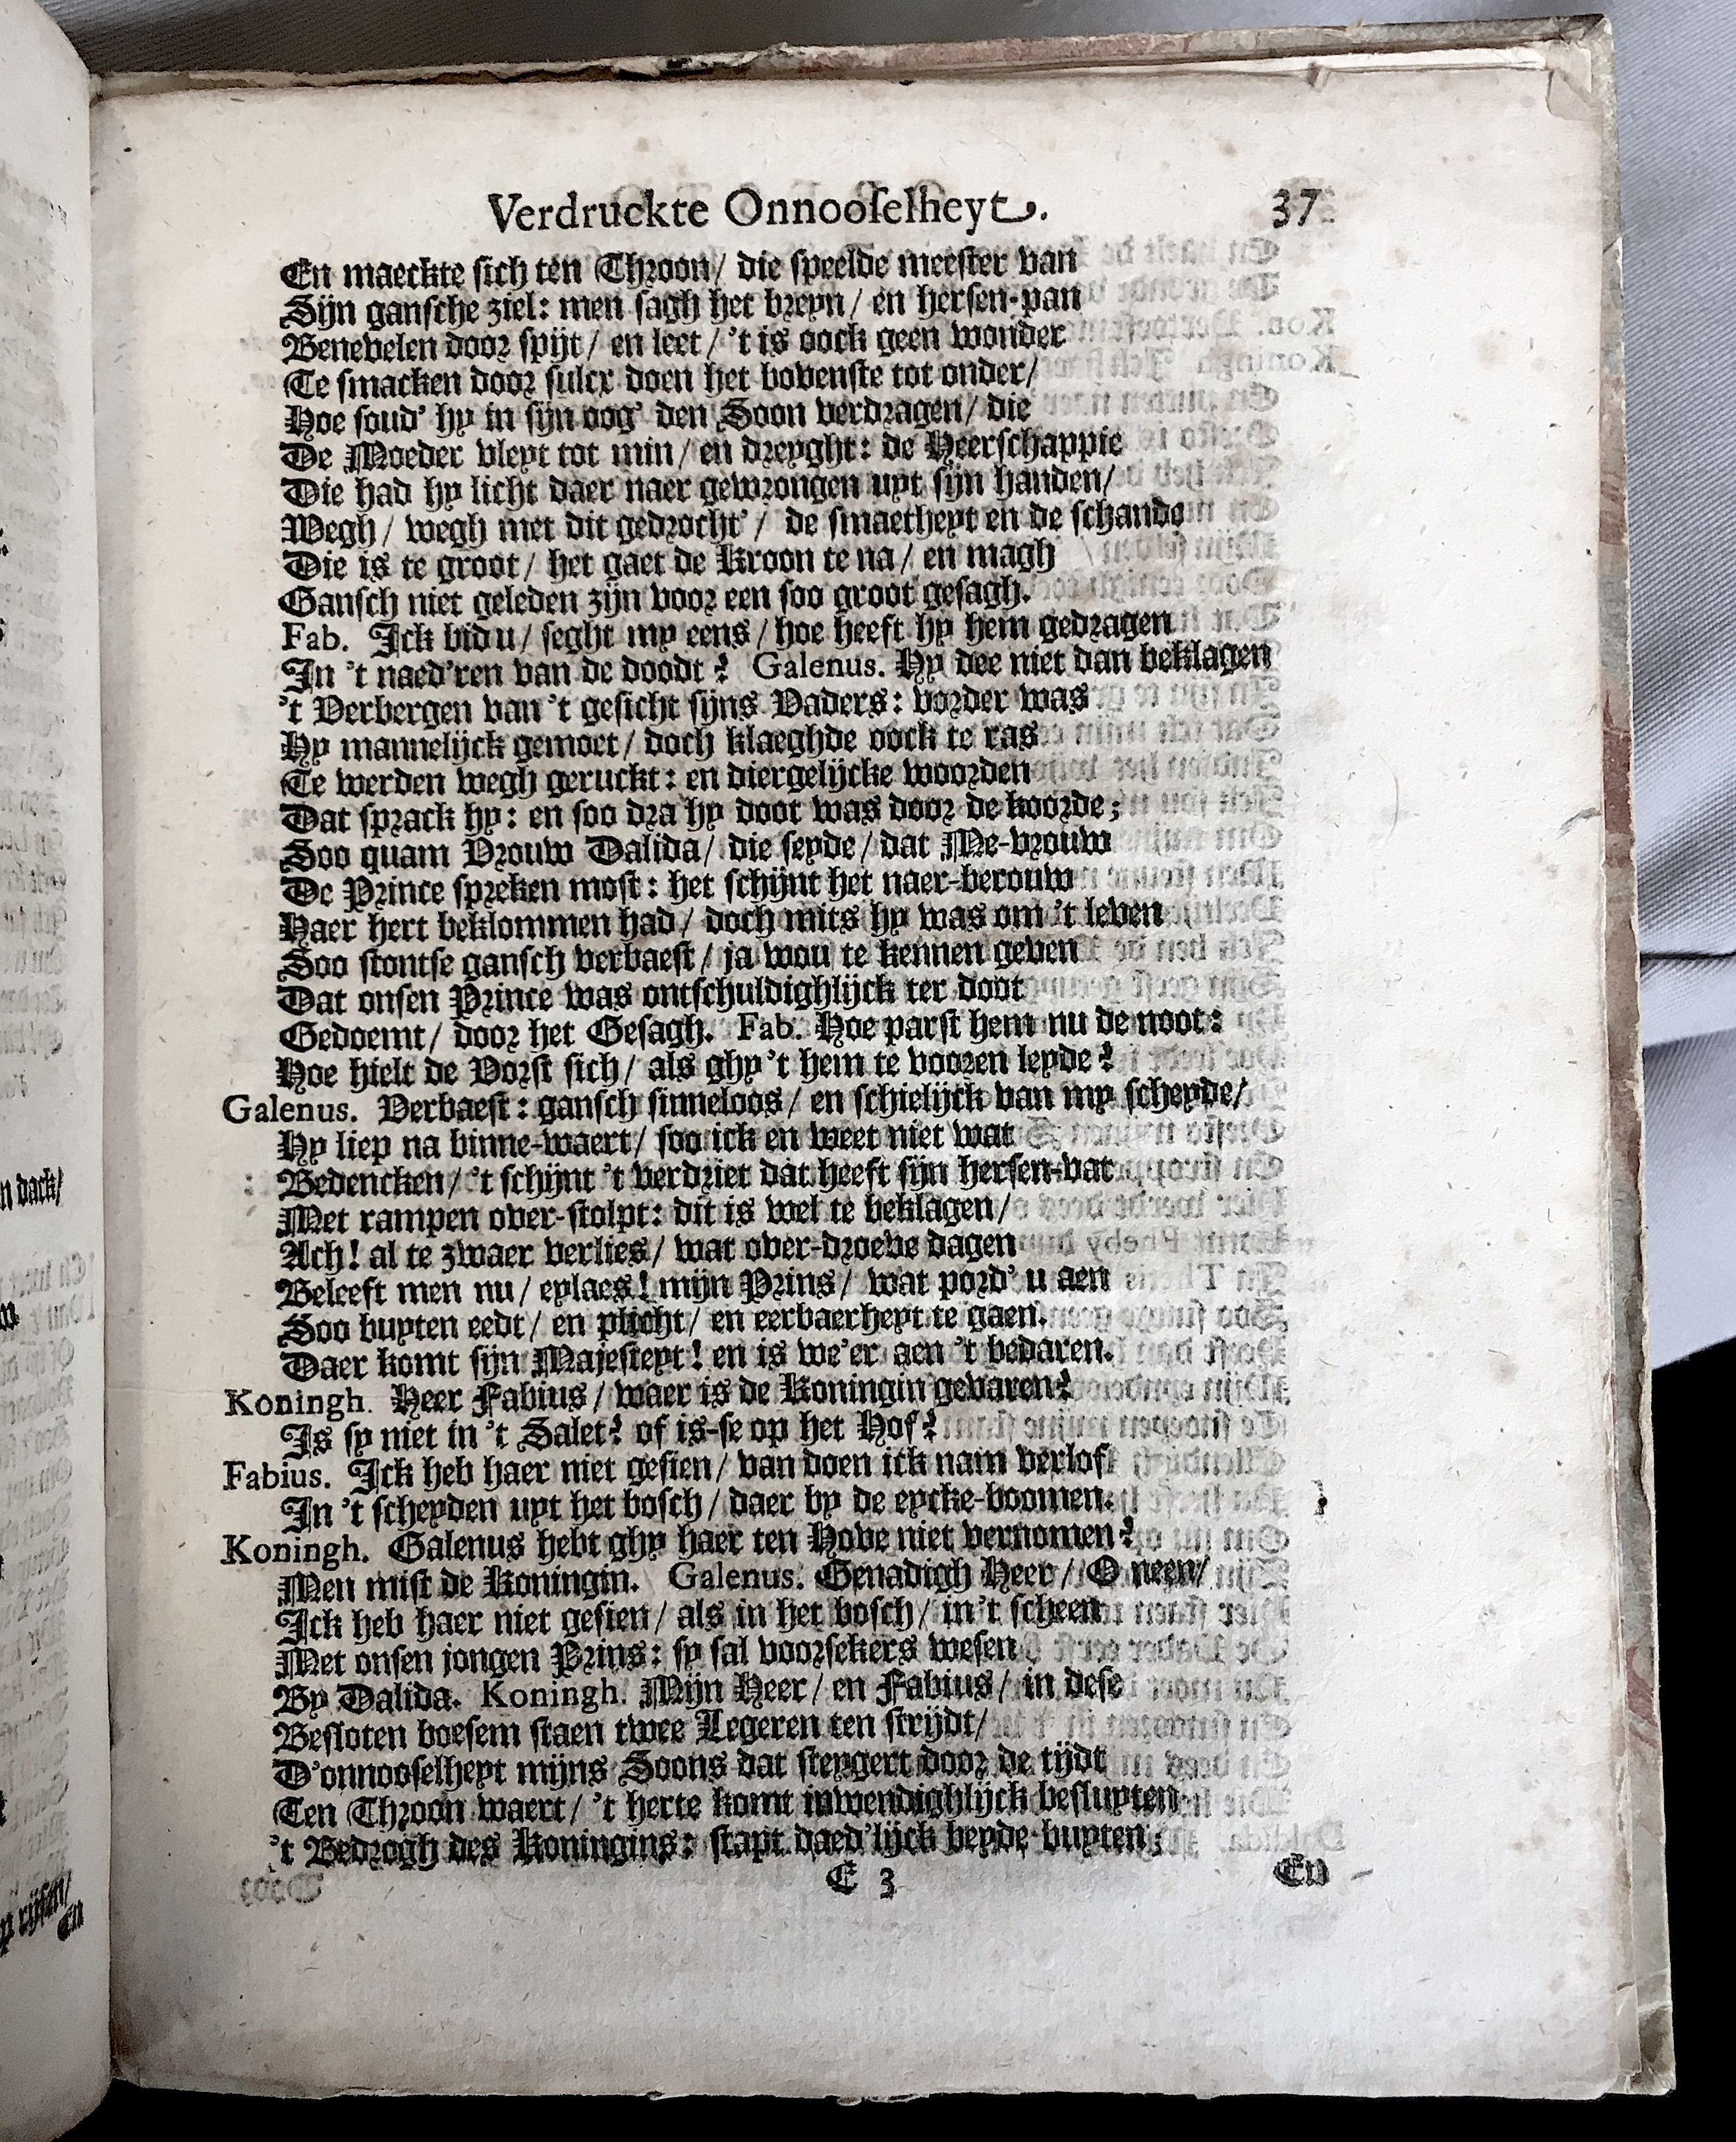 Verdruckte Onnooselheyt. 37
En maeckte sich ten Throon/ die speelde meester van
Sijn gansche ziel: men sagh het breyn/ en hersen-pan
Benevelen door spijt/ en leet/ 't is oock geen wonder
Te smacken door sulcx doen het bovenste tot onder/
Hoe soud' hy in sijn oog' den Soon verdragen/ die
De Moeder vleyt tot min/ en dreyght: de Heerschappie
Die had hy licht daer naer gewrongen uyt sijn handen/
Wegh/ wegh met dit gedrocht'/ de smaetheyt en de schande
Die is te groot/ het gaet de Kroon te na/ en magh
Gansch niet geleden zijn voor een soo groot gesagh.
Fab. Ick bid u/ seght my eens/ hoe heeft hy hem gedragen
In 't naed'ren van de doodt? Galenus. Hy dee niet dan beklagen
't Verbergen van 't gesicht sijns Vaders: vorder was
Hy mannelijck gemoet/ doch klaeghde oock te ras
Te werden wegh geruckt: en diergelijcke woorden
Dat sprack hy: en soo dra hy doot was door de koorde;
Soo quam Vrouw Dalida/ die seyde/ dat Me-vrouw
De Prince spreken most: het schijnt het naer-berouw
Haer hert beklommen had/ doch mits hy was om 't leven
Soo stontse gansch verbaest/ ja wou te kennen geven
Dat onsen Prince was ontschuldighlijck ter doot
Gedoemt/ door het Gesagh. Fab. Hoe parst hem nu de noot:
Hoe hielt de Vorst sich/ als ghy 't hem te vooren leyde?
Galenus. Verbaest: gansch sinneloos/ en schielijck van my scheyde/
Hy liep na binne-waert/ soo ick en weet niet wat
Bedencken/ 't schijnt 't verdriet dat heeft sijn hersen-vat
Met rampen over-stolpt: dit is wel te beklagen/
Ach! al te zwaer verlies/ wat over-droeve dagen
Beleeft men nu/ eylaes! mijn Prins/ wat pord' u aen
Soo buyten eedt/ en plicht/ en eerbaerheyt te gaen.
Daer komt sijn Majesteyt! en is we'er aen 't bedaren.
Koningh. Heer Fabius/ waer is de Koningin gevaren?
Is sy niet in 't Salet? of is-se op het Hof?
Fabius. Ick heb haer niet gesien/ van doen ick nam verlof
In 't scheyden uyt het bosch/ daer by de eycke-boomen.
Koningh. Galenus hebt ghy haer ten Hove niet vernomen?
Men mist de Koningin. Galenus. Genadigh Heer/ O neen/
Ick heb haer niet gesien/ als in het bosch/ in 't scheen
Met onsen jongen Prins: sy sal voorsekers wesen
By Dalida. Koningh. Mijn Heer/ en Fabius/ in dese
Besloten boesem staen twee Legeren ten strijdt/
D'onnooselheyt mijns Soons dat steygert door de tijdt
Ten Throon waert/ 't herte komt inwendighlijck besluyten
't Bedrogh des Koningins: stapt daed'lijck beyde buyten;
E 3 En
n dack/
p rijsen/
En